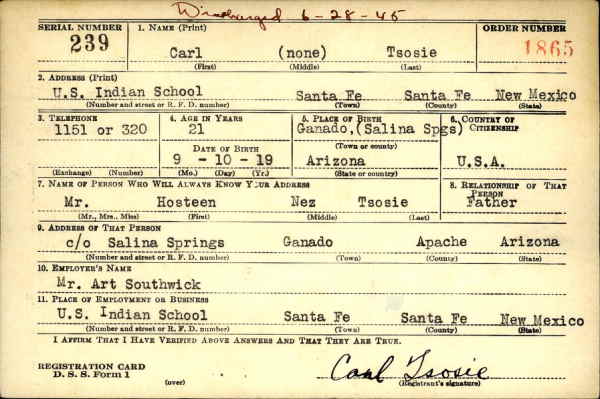 Discharged 6-28-45
SERIAL NUMBER 1. NAME (Print) ORDER NUMBER
239 Carl (none) Tsosie 1865
(First) (Middle) (Last)
2. ADDRESS (Print)
U.S. Indian School Santa Fe Santa Fe New Mexico
(Number and street or R. F. D. number) (Town) (County) (State)
3. TELEPHONE 4. AGE IN YEARS 5. PLACE OF BIRTH 6. COUNTRY OF CITIZENSHIP
1151 or 320 21 Ganado,(Salina Spgs)
(Town or county)
DATE OF BIRTH
9 - 10 - 19 Arizona U.S.A.
(Exchange) (Number) (Mo.) (Day) (Yr.) (State or country)
7. NAME OF PERSON WHO WILL ALWAYS KNOW YOUR ADDRESS 8. RELATIONSHIP OF THAT PERSON
Mr. Hosteen Nez Tsosie Father
(Mr., Mrs., Miss) (First) (Middle) (Last)
9. ADDRESS OF THAT PERSON
c/o Salina Springs Ganado Apache Arizona
(Number and street or R. F. D. number) (Town) (County) (State)
10. EMPLOYER'S NAME
Mr. Art Southwick
11. PLACE OF EMPLOYMENT OR BUSINESS
U.S. Indian School Santa Fe Santa Fe New Mexico
(Number and street or R. F. D. number) (Town) (County) (State)
I AFFIRM THAT I HAVE VERIFIED ABOVE ANSWERS AND THAT THEY ARE TRUE.
REGISTRATION CARD
D. S. S. Form 1 (over) Carl Tsosie
(Registrant's signature)